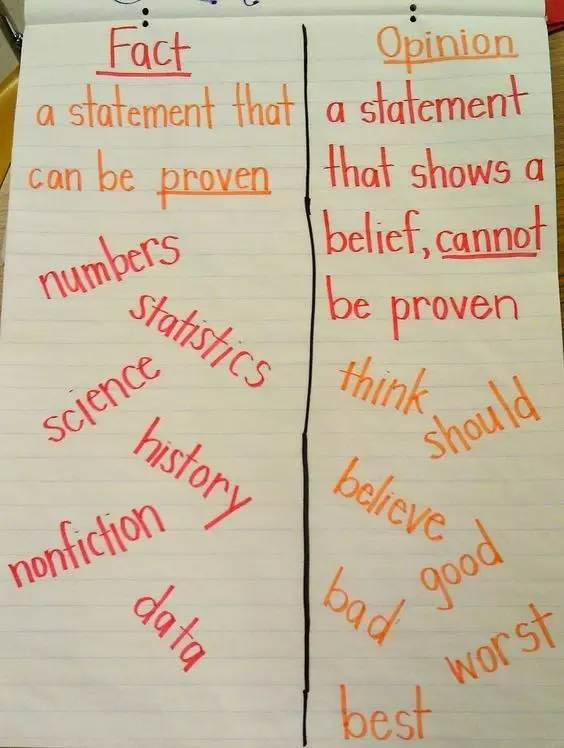 Fact
a statement that
can be proven
numbers
statistics
science
history
nonfiction
data
Opinion
a statement
that shows a
belief, cannot
be proven
think
should
believe
good
bad
worst
best